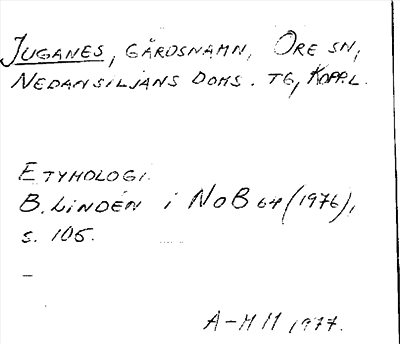 JUGANES, GÅRDSNAMN, ORE SN,
NEDANSILJANS DOMS. TG, KOPP.L.
ETYMOLOGI.
B. LINDÉN i NoB 64 (1976),
s. 105.
–
A-M M 1977.